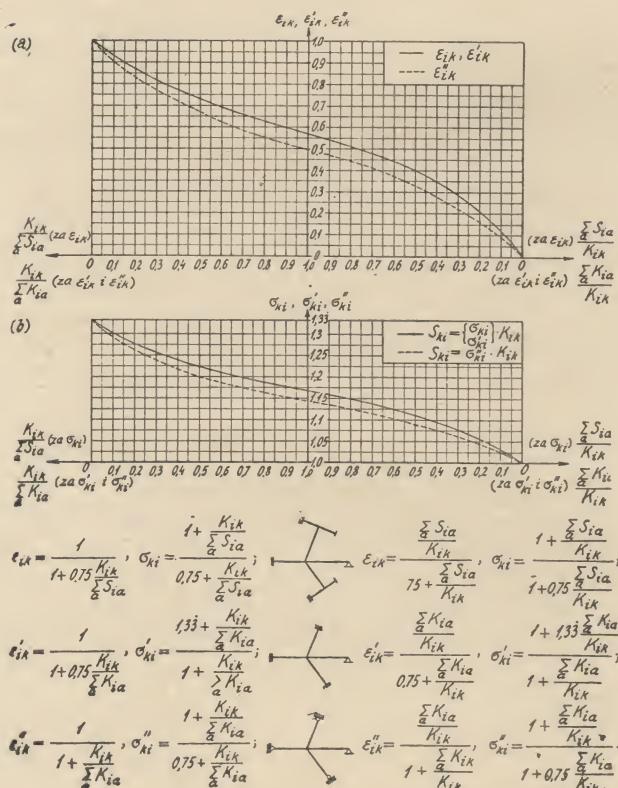 (a)
ε_ik, ε'_ik, ε''_ik
1,0
0,9
0,8
0,7
0,6
0,5
0,4
0,3
0,2
0,1
0
ε_ik, ε'_ik
ε''_ik
K_ik / Σ_a S_ia (za ε_ik)
K_ik / Σ_a K_ia (za ε'_ik i ε''_ik)
0 0,1 0,2 0,3 0,4 0,5 0,6 0,7 0,8 0,9 1,0 0,9 0,8 0,7 0,6 0,5 0,4 0,3 0,2 0,1 0
(za ε_ik) Σ_a S_ia / K_ik
(za ε'_ik i ε''_ik) Σ_a K_ia / K_ik
(b)
σ_ki, σ'_ki, σ''_ki
1,33
1,3
1,25
1,2
1,15
1,1
1,05
1,0
S_ki = {σ_ki σ'_ki} · K_ik
S_ki = σ''_ki · K_ik
K_ik / Σ_a S_ia (za σ_ki)
K_ik / Σ_a K_ia (za σ'_ki i σ''_ki)
0 0,1 0,2 0,3 0,4 0,5 0,6 0,7 0,8 0,9 1,0 0,9 0,8 0,7 0,6 0,5 0,4 0,3 0,2 0,1 0
(za σ_ki) Σ_a S_ia / K_ik
(za σ'_ki i σ''_ki) Σ_a K_i / K_ik
ε_ik = 1 / (1 + 0,75 K_ik / Σ_a S_ia), σ_ki = (1 + K_ik / Σ_a S_ia) / (0,75 + K_ik / Σ_a S_ia); ε_ik = (Σ_a S_ia / K_ik) / (75 + Σ_a S_ia / K_ik), σ_ki = (1 + Σ_a S_ia / K_ik) / (1 + 0,75 Σ_a S_ia / K_ik);
ε'_ik = 1 / (1 + 0,75 K_ik / Σ_a K_ia), σ'_ki = (1,33 + K_ik / Σ_a K_ia) / (1 + K_ik / Σ_a K_ia); ε'_ik = (Σ_a K_ia / K_ik) / (0,75 + Σ_a K_ia / K_ik), σ'_ki = (1 + 1,33 Σ_a K_ia / K_ik) / (1 + Σ_a K_ia / K_ik);
ε''_ik = 1 / (1 + K_ik / Σ_a K_ia), σ''_ki = (1 + K_ik / Σ_a K_ia) / (0,75 + K_ik / Σ_a K_ia); ε''_ik = (Σ_a K_ia / K_ik) / (1 + Σ_a K_ik / K_ik), σ''_ki = (1 + Σ_a K_ia / K_ik) / (1 + 0,75 Σ_a K_ia / K_ik)